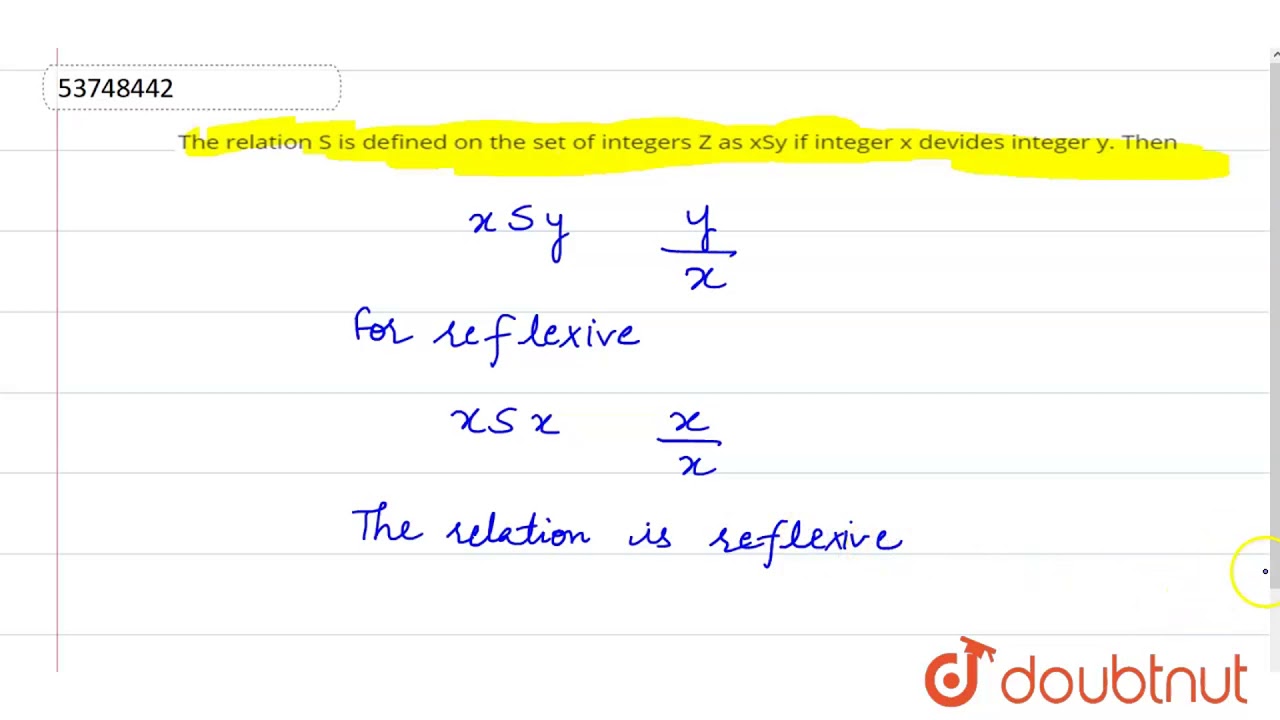 53748442
The relation S is defined on the set of integers Z as xSy if integer x devides integer y. Then
x S y y/x
for reflexive
x S x x/x
The relation is reflexive
doubtnut